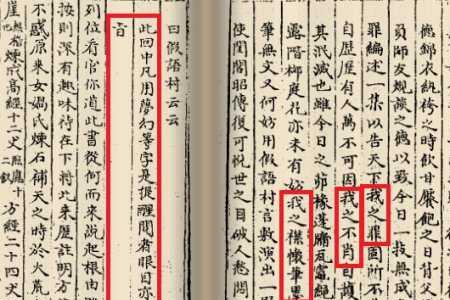 德錦衣紈袴之時飫甘饜肥之日背父
負師友規談之德以致今日一技無成
罪編述一集以告天下我之罪固所不
自歷歷有人萬不可因我之不肖自護
其泯滅也雖今日之茆椽蓬牖瓦竈繩
露階柳庭花亦未有妨我之襟懷筆墨
筆無文又何妨用假語村言敷演出一
使閨閣昭傳復可悅世之目破人愁悶
曰假語村云云
此回中凡用夢幻等字是提醒閱者眼目亦
旨
列位看官你道此書從何而來說起根由
按則深有趣味待在下將此來歷註明方
不惑原來女媧氏煉石補天之時於大荒
崖無稽也煉成高經十二丈照應十二釵方經二十四丈